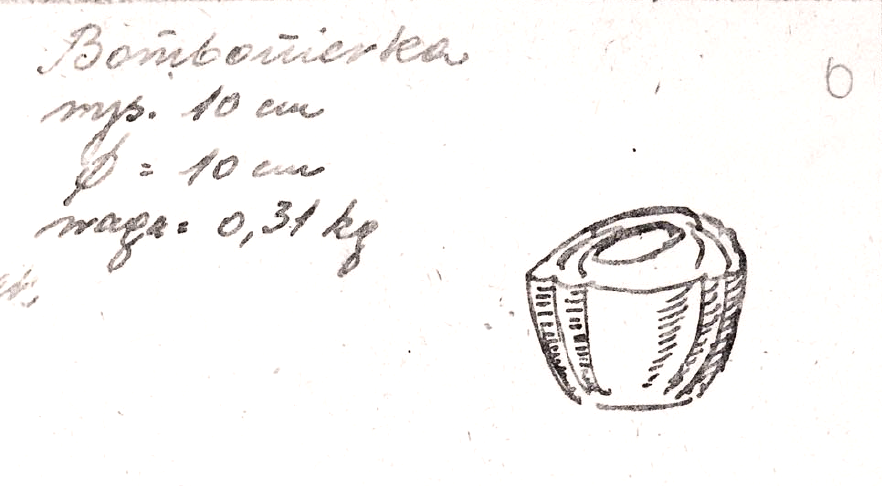 Bombonierka
wys. 10 cm
ϕ = 10 cm
waga = 0,31 kg
6